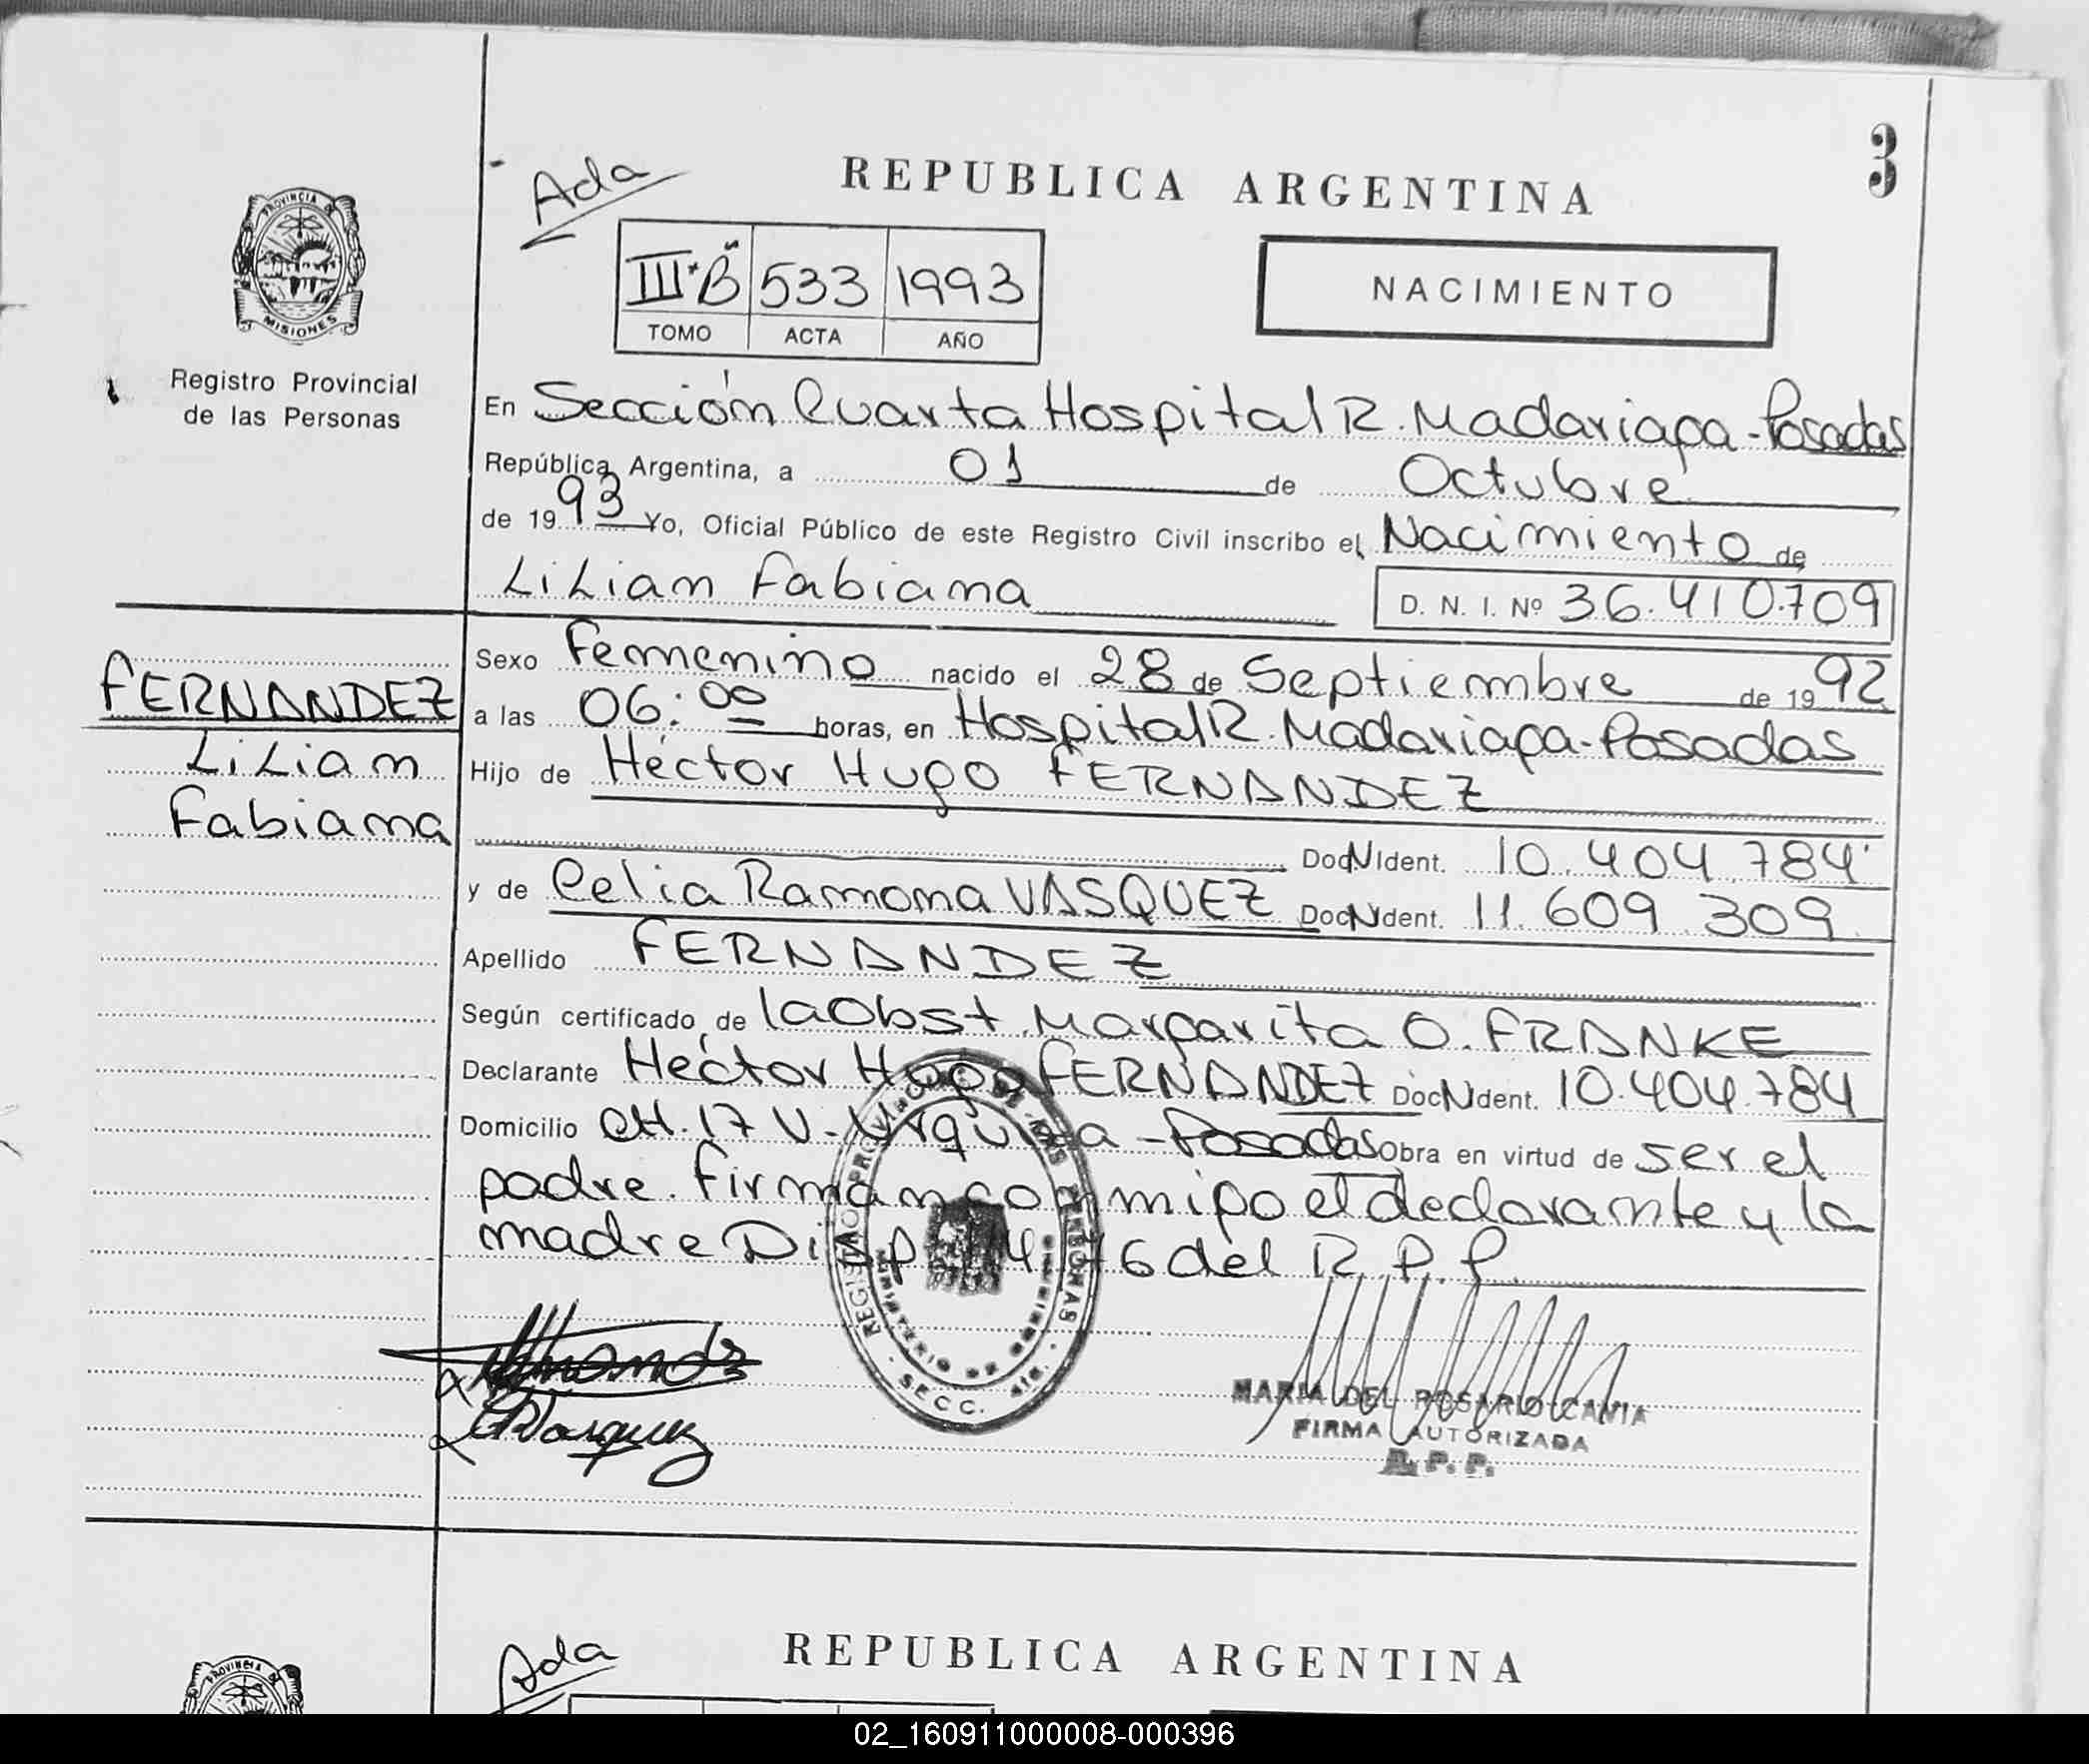 3
Ada
REPUBLICA ARGENTINA
PROVINCIA DE
MISIONES
Registro Provincial
de las Personas
III "B" 533 1993
TOMO ACTA AÑO
NACIMIENTO
En Sección Cuarta Hospital R. Madariaga - Posadas
República Argentina, a 01 de Octubre
de 1993 Yo, Oficial Público de este Registro Civil inscribo el Nacimiento de
LiLian Fabiana D. N. I. Nº 36.410.709
FERNANDEZ
LiLian
Fabiana
Sexo Femenino nacido el 28 de Septiembre de 1992
a las 06:00 horas, en Hospital R. Madariaga - Posadas
Hijo de Héctor Hugo FERNANDEZ
Doc. Ident. 10.404.784
y de Celia Ramona VASQUEZ Doc. Ident. 11.609.309
Apellido FERNANDEZ
Según certificado de la Obst. Margarita O. FRANKE
Declarante Héctor Hugo FERNANDEZ Doc. Ident. 10.404.784
Domicilio CH. 17 V. Urquiza - Posadas Obra en virtud de ser el
padre. Firman conmigo el declarante y la
madre Disp. 14 del R. P. P.
REGISTRO PROVINCIAL DE LAS PERSONAS
MINISTERIO DE GOBIERNO
SECC.
Vasquez
MARIA DEL ROSARIO CANIA
FIRMA AUTORIZADA
R. P. P.
Ada
REPUBLICA ARGENTINA
PROVINCIA DE
02_160911000008-000396